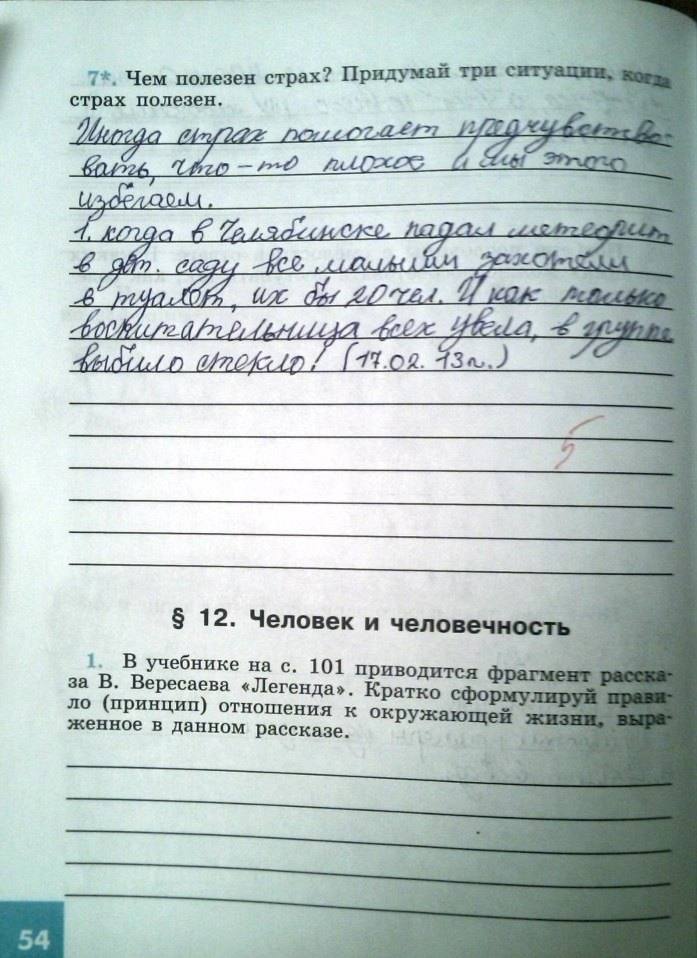 7*. Чем полезен страх? Придумай три ситуации, когда
страх полезен.
Иногда страх помогает предчувство-
вать, что-то плохое и мы этого
избегаем.
1. когда в Челябинске падал метеорит
в дет. саду все малыши захотели
в туалет, их бы 20 чел. И как только
воспитательница всех увела, в группе
выбило стекло! (17.02.13г.)
5
§ 12. Человек и человечность
1. В учебнике на с. 101 приводится фрагмент расска-
за В. Вересаева «Легенда». Кратко сформулируй прави-
ло (принцип) отношения к окружающей жизни, выра-
женное в данном рассказе.
54